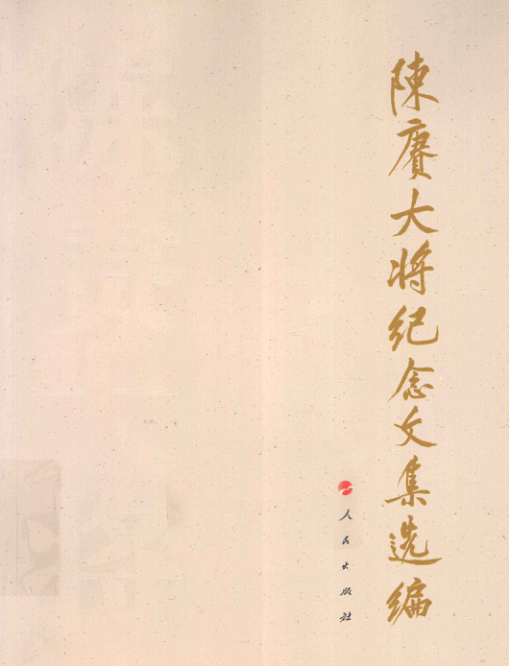 陳賡大将纪念文集选编
人民出版社